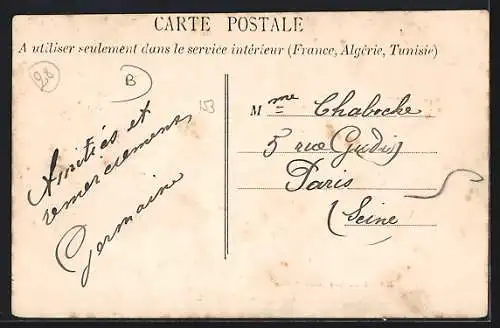 CARTE POSTALE
A utiliser seulement dans le service intérieur (France, Algérie, Tunisie)
28
B
153
Amitiés et
remerciements
Germaine
Mme Chaboche
5 rue Gudin
Paris
(Seine)